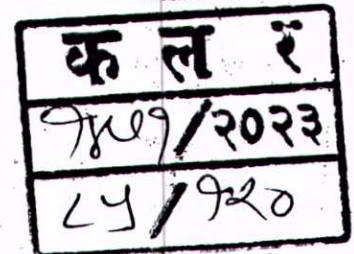 क ल र
१४७१/२०२३
८५/१२०